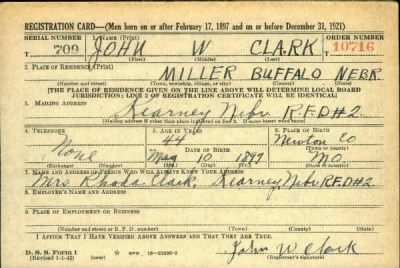 REGISTRATION CARD—(Men born on or after February 17, 1897 and on or before December 31, 1921)
SERIAL NUMBER 1. NAME (Print) ORDER NUMBER
T 709 JOHN W CLARK 10716
(First) (Middle) (Last)
2. PLACE OF RESIDENCE (Print)
MILLER BUFFALO NEBR
(Number and street) (Town, township, village, or city) (County) (State)
[THE PLACE OF RESIDENCE GIVEN ON THE LINE ABOVE WILL DETERMINE LOCAL BOARD
JURISDICTION; LINE 2 OF REGISTRATION CERTIFICATE WILL BE IDENTICAL]
3. MAILING ADDRESS
Kearney Nebr R.F.D#2.
[Mailing address if other than place indicated on line 2. If same insert word same]
4. TELEPHONE 5. AGE IN YEARS 6. PLACE OF BIRTH
44 Newton Co
None DATE OF BIRTH (Town or county)
May 10 1897 MO
(Exchange) (Number) (Mo.) (Day) (Yr.) (State or country)
7. NAME AND ADDRESS OF PERSON WHO WILL ALWAYS KNOW YOUR ADDRESS
Mrs Rhoda Clark, Kearney, Nebr R.F.D#2
8. EMPLOYER'S NAME AND ADDRESS
9. PLACE OF EMPLOYMENT OR BUSINESS
(Number and street or R. F. D. number) (Town) (County) (State)
I AFFIRM THAT I HAVE VERIFIED ABOVE ANSWERS AND THAT THEY ARE TRUE.
D. S. S. Form 1
(Revised 1-1-42) (over) GPO 16—21630-2
John W Clark